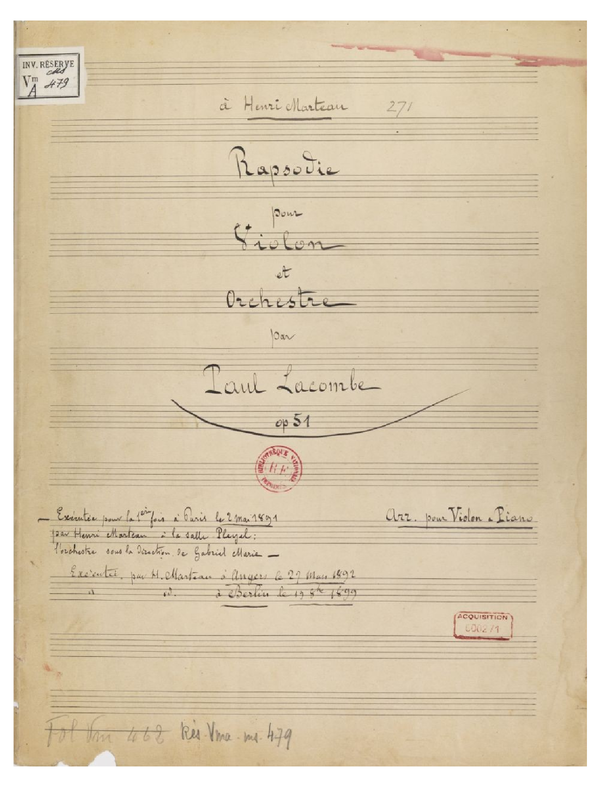 INV. RÉSERVE
Vm
A
479
à Henri Marteau 271
Rapsodie
pour
Violon
et
Orchestre
par
Paul Lacombe
op 51
BIBLIOTHÈQUE NATIONALE
Exécutée pour la 1ère fois à Paris le 2 Mai 1891
par Henri Marteau à la salle Pleyel;
l'orchestre sous la direction de Gabriel Marie —
Arr. pour Violon & Piano
Exécutée, par H. Marteau à Angers le 27 Mars 1892
à Berlin le 19 8bre 1899
ACQUISITION
Fol Vm 468 Rés. Vma. ms. 479